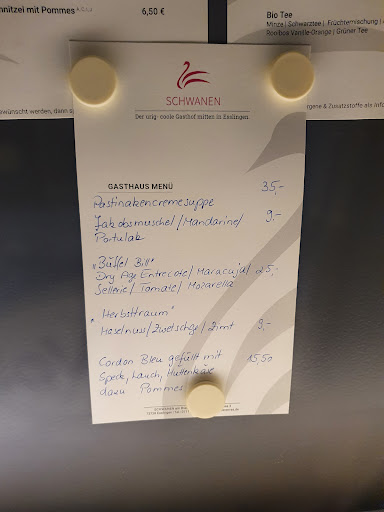 hnitzel mit Pommes 6,50 €
Bio Tee
Minze | Schwarztee | Früchtemischung |
Rooibos Vanille-Orange | Grüner Tee
ewünscht werden, dann s
ergene & Zusatzstoffe als Info
SCHWANEN
Der urig-coole Gasthof mitten in Esslingen.
GASTHAUS MENÜ 35,-
Pastinakencremesuppe
Jakobsmuschel / Mandarine / 9,-
Portulak
"Büffel Bill"
Dry Age Entrecote / Maracuja / 25,-
Sellerie / Tomate / Mozarella
"Herbsttraum"
Haselnuss / Zwetschge / Zimt 9,-
Cordon Bleu gefüllt mit 15,50
Speck, Lauch, Hüttenkäse
dazu Pommes